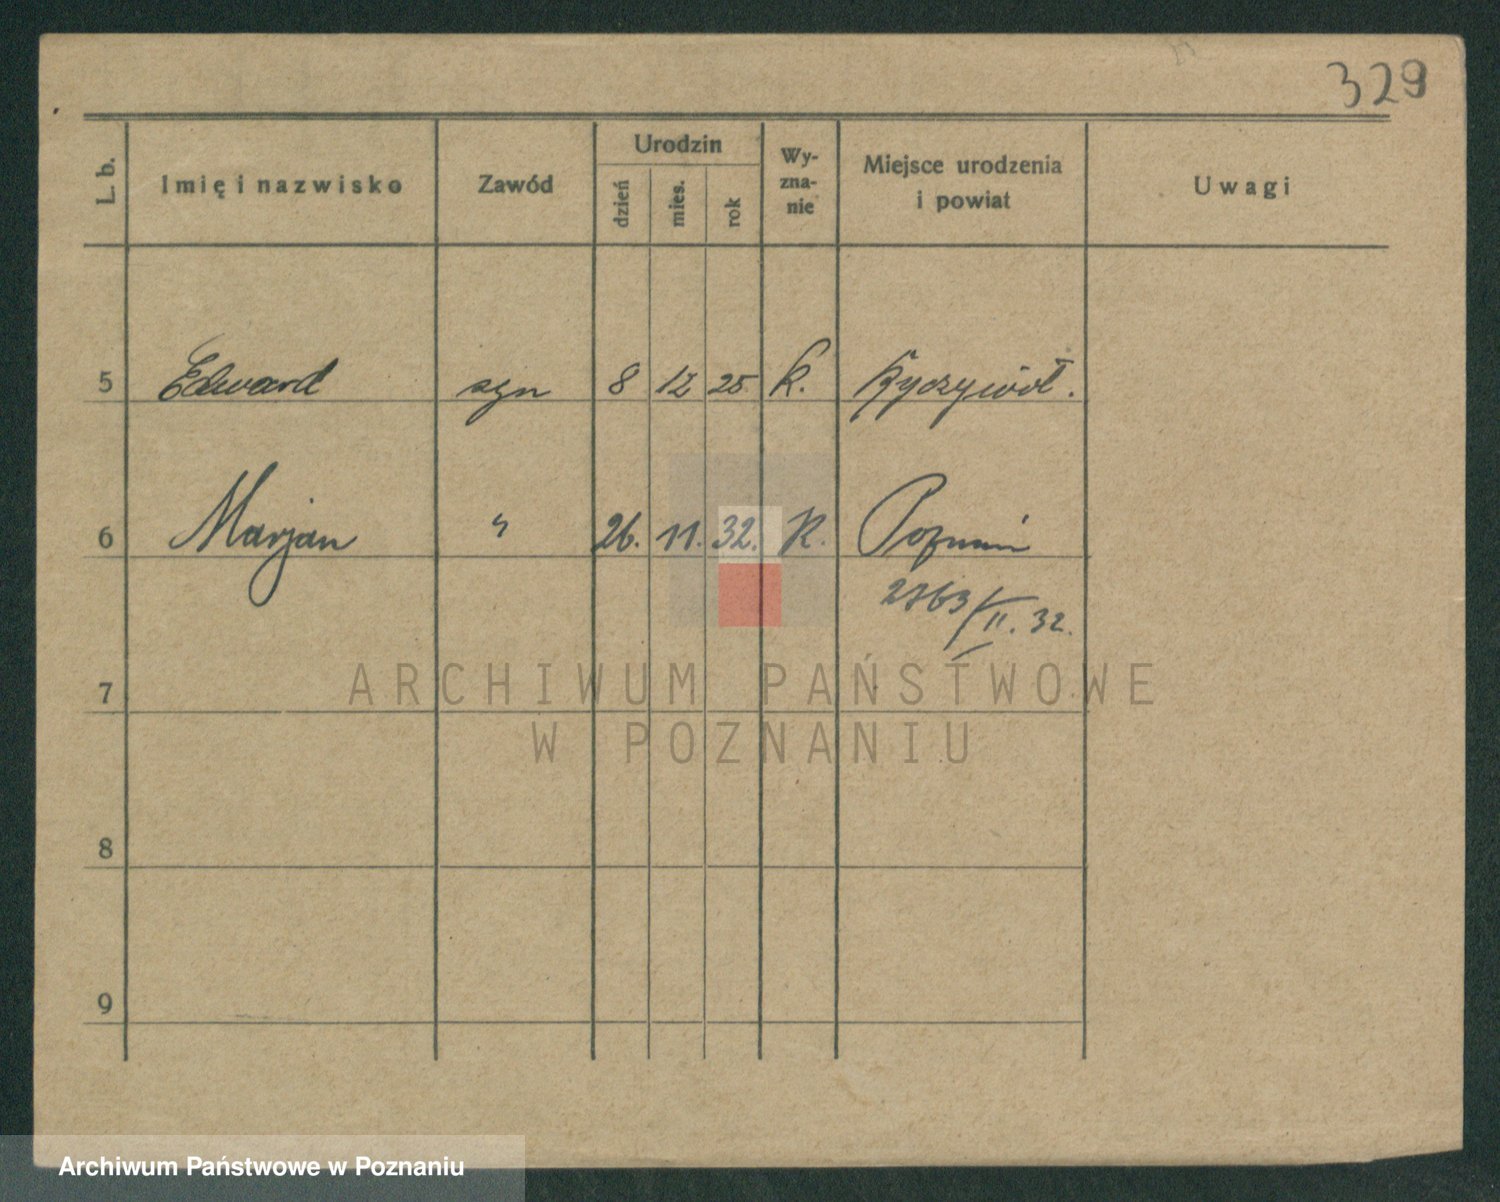 329
L. b. Imię i nazwisko Zawód Urodzin dzień mies. rok Wy-zna-nie Miejsce urodzenia i powiat Uwagi
5 Edward syn 8 12 25 k. Ryczywół.
6 Marjan " 26. 11. 32. K. Poznań
2763/II. 32.
7
ARCHIWUM PAŃSTWOWE
W POZNANIU
8
9
Archiwum Państwowe w Poznaniu